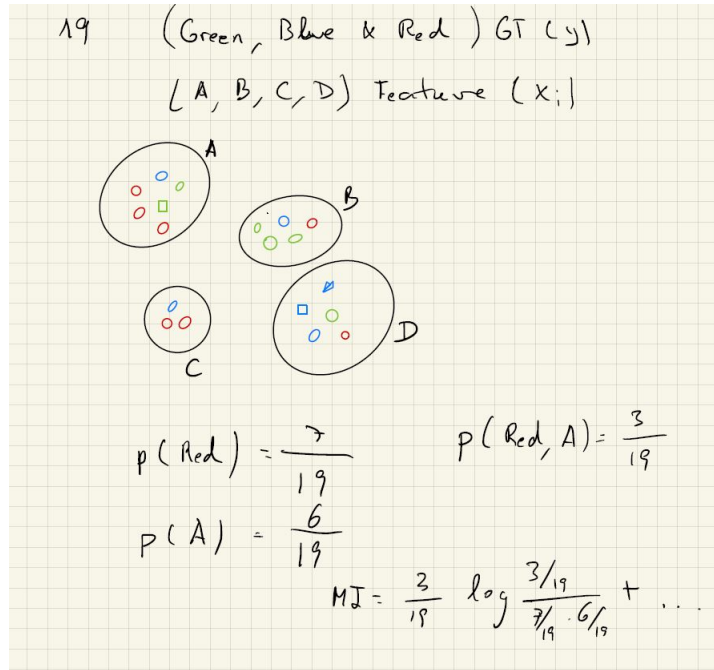 19 (Green, Blue & Red) GT (y)
(A, B, C, D) Feature (xi)
A
B
C
D
p(Red) = 7/19
p(Red, A) = 3/19
p(A) = 6/19
MI = 3/19 log (3/19)/(7/19 · 6/19) + ...